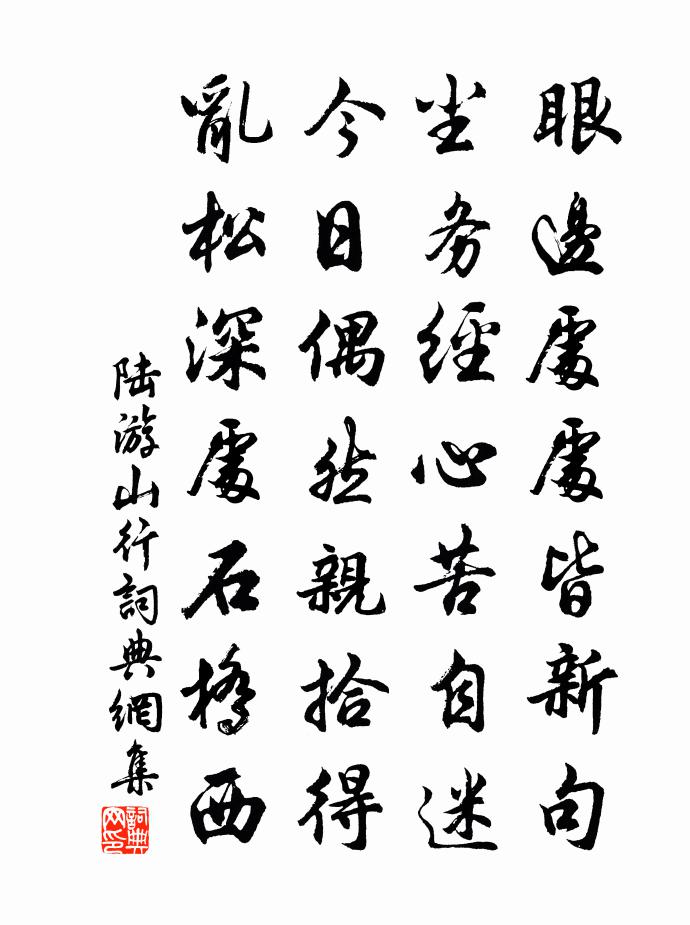 眼邊處處皆新句
尘务經心苦自迷
今日偶然親拾得
亂松深處石橋西
陆游山行詞典網集
詞典网印